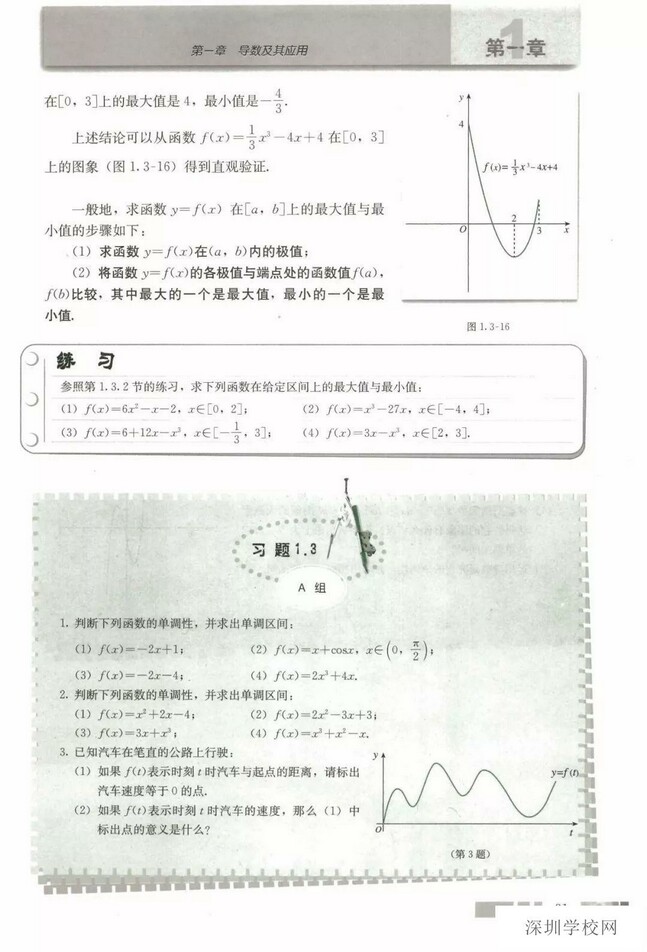 第一章 导数及其应用
第一章
1
在[0，3]上的最大值是 4，最小值是-4/3.
上述结论可以从函数 f(x)=1/3x³-4x+4 在[0，3]
上的图象（图 1.3-16）得到直观验证.
一般地，求函数 y=f(x) 在[a，b]上的最大值与最
小值的步骤如下：
(1) 求函数 y=f(x)在(a，b)内的极值；
(2) 将函数 y=f(x)的各极值与端点处的函数值f(a)，
f(b)比较，其中最大的一个是最大值，最小的一个是最
小值.
y
4
f(x)=1/3x³-4x+4
2
O
3
x
图 1.3-16
练 习
参照第 1.3.2 节的练习，求下列函数在给定区间上的最大值与最小值：
(1) f(x)=6x²-x-2，x∈[0，2]； (2) f(x)=x³-27x，x∈[-4，4]；
(3) f(x)=6+12x-x³，x∈[-1/3，3]； (4) f(x)=3x-x³，x∈[2，3].
习 题 1.3
A 组
1. 判断下列函数的单调性，并求出单调区间：
(1) f(x)=-2x+1； (2) f(x)=x+cosx，x∈(0，π/2)；
(3) f(x)=-2x-4； (4) f(x)=2x³+4x.
2. 判断下列函数的单调性，并求出单调区间：
(1) f(x)=x²+2x-4； (2) f(x)=2x²-3x+3；
(3) f(x)=3x+x³； (4) f(x)=x³+x²-x.
3. 已知汽车在笔直的公路上行驶：
(1) 如果 f(t)表示时刻 t 时汽车与起点的距离，请标出
汽车速度等于 0 的点.
(2) 如果 f(t)表示时刻 t 时汽车的速度，那么（1）中
标出点的意义是什么？
y
y=f(t)
O
t
（第 3 题）
深圳学校网